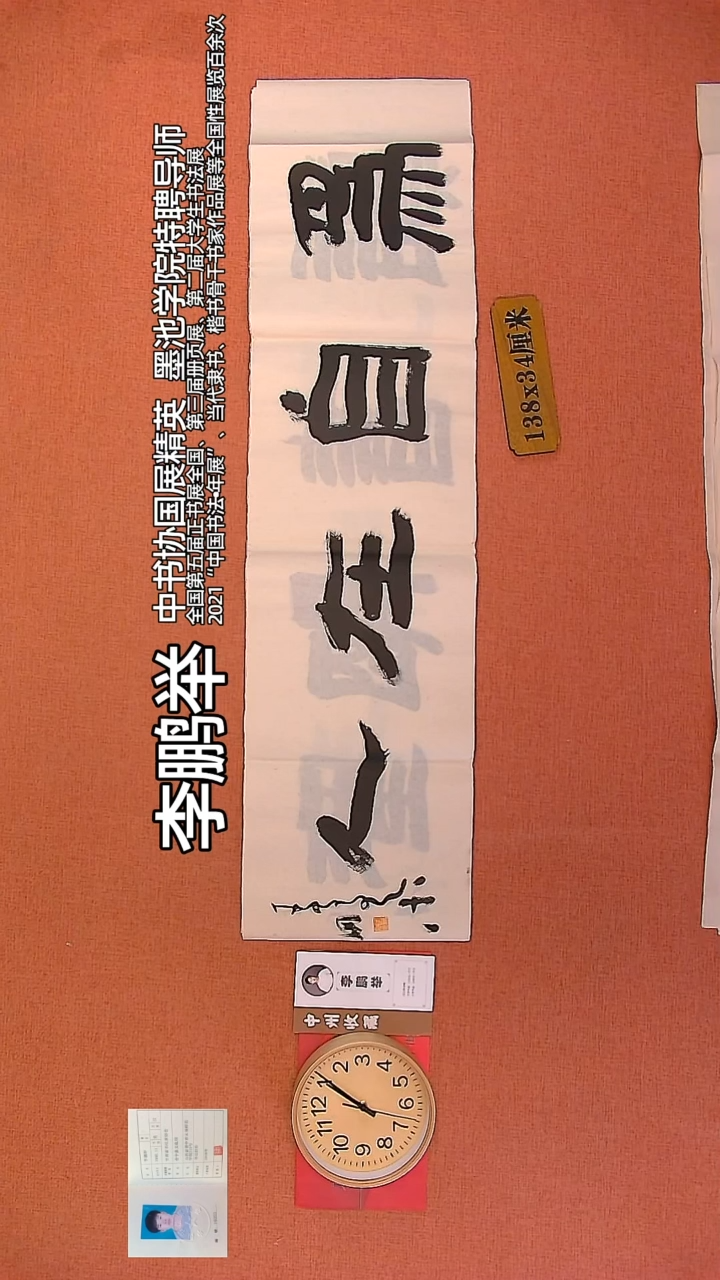 李鹏举
中书协国展精英 墨池学院特聘导师
全国第五届正书展全国、第三届册页展、第二届大学生书法展
2021“中国书法·年展”、当代隶书、楷书骨干书家作品展等全国性展览百余次
爲自在人
138x34厘米
李鹏举
中州收藏
12
1
2
3
4
5
6
7
8
9
10
11